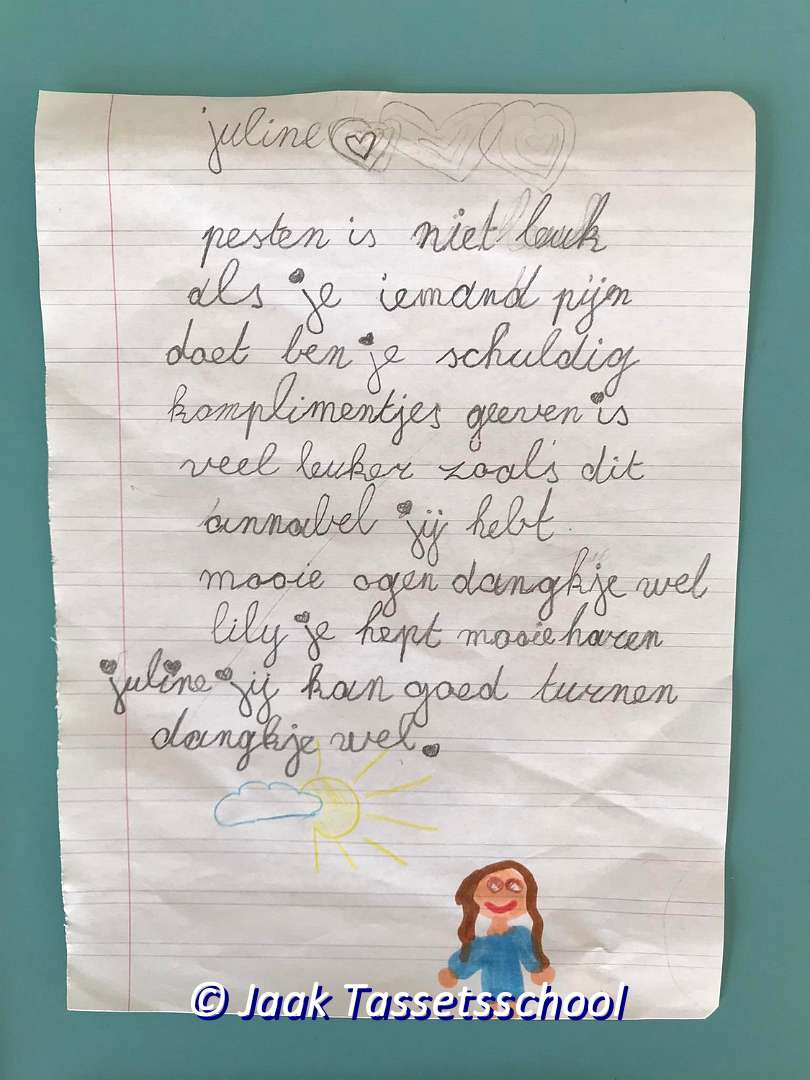 juline
pesten is niet leuk
als je iemand pijn
doet ben je schuldig
komplimentjes geeven is
veel leuker zoals dit
annabel jij hebt
mooie ogen dangkje wel
lily je hept mooie haren
juline jij kan goed turnen
dangkje wel.
© Jaak Tassetsschool